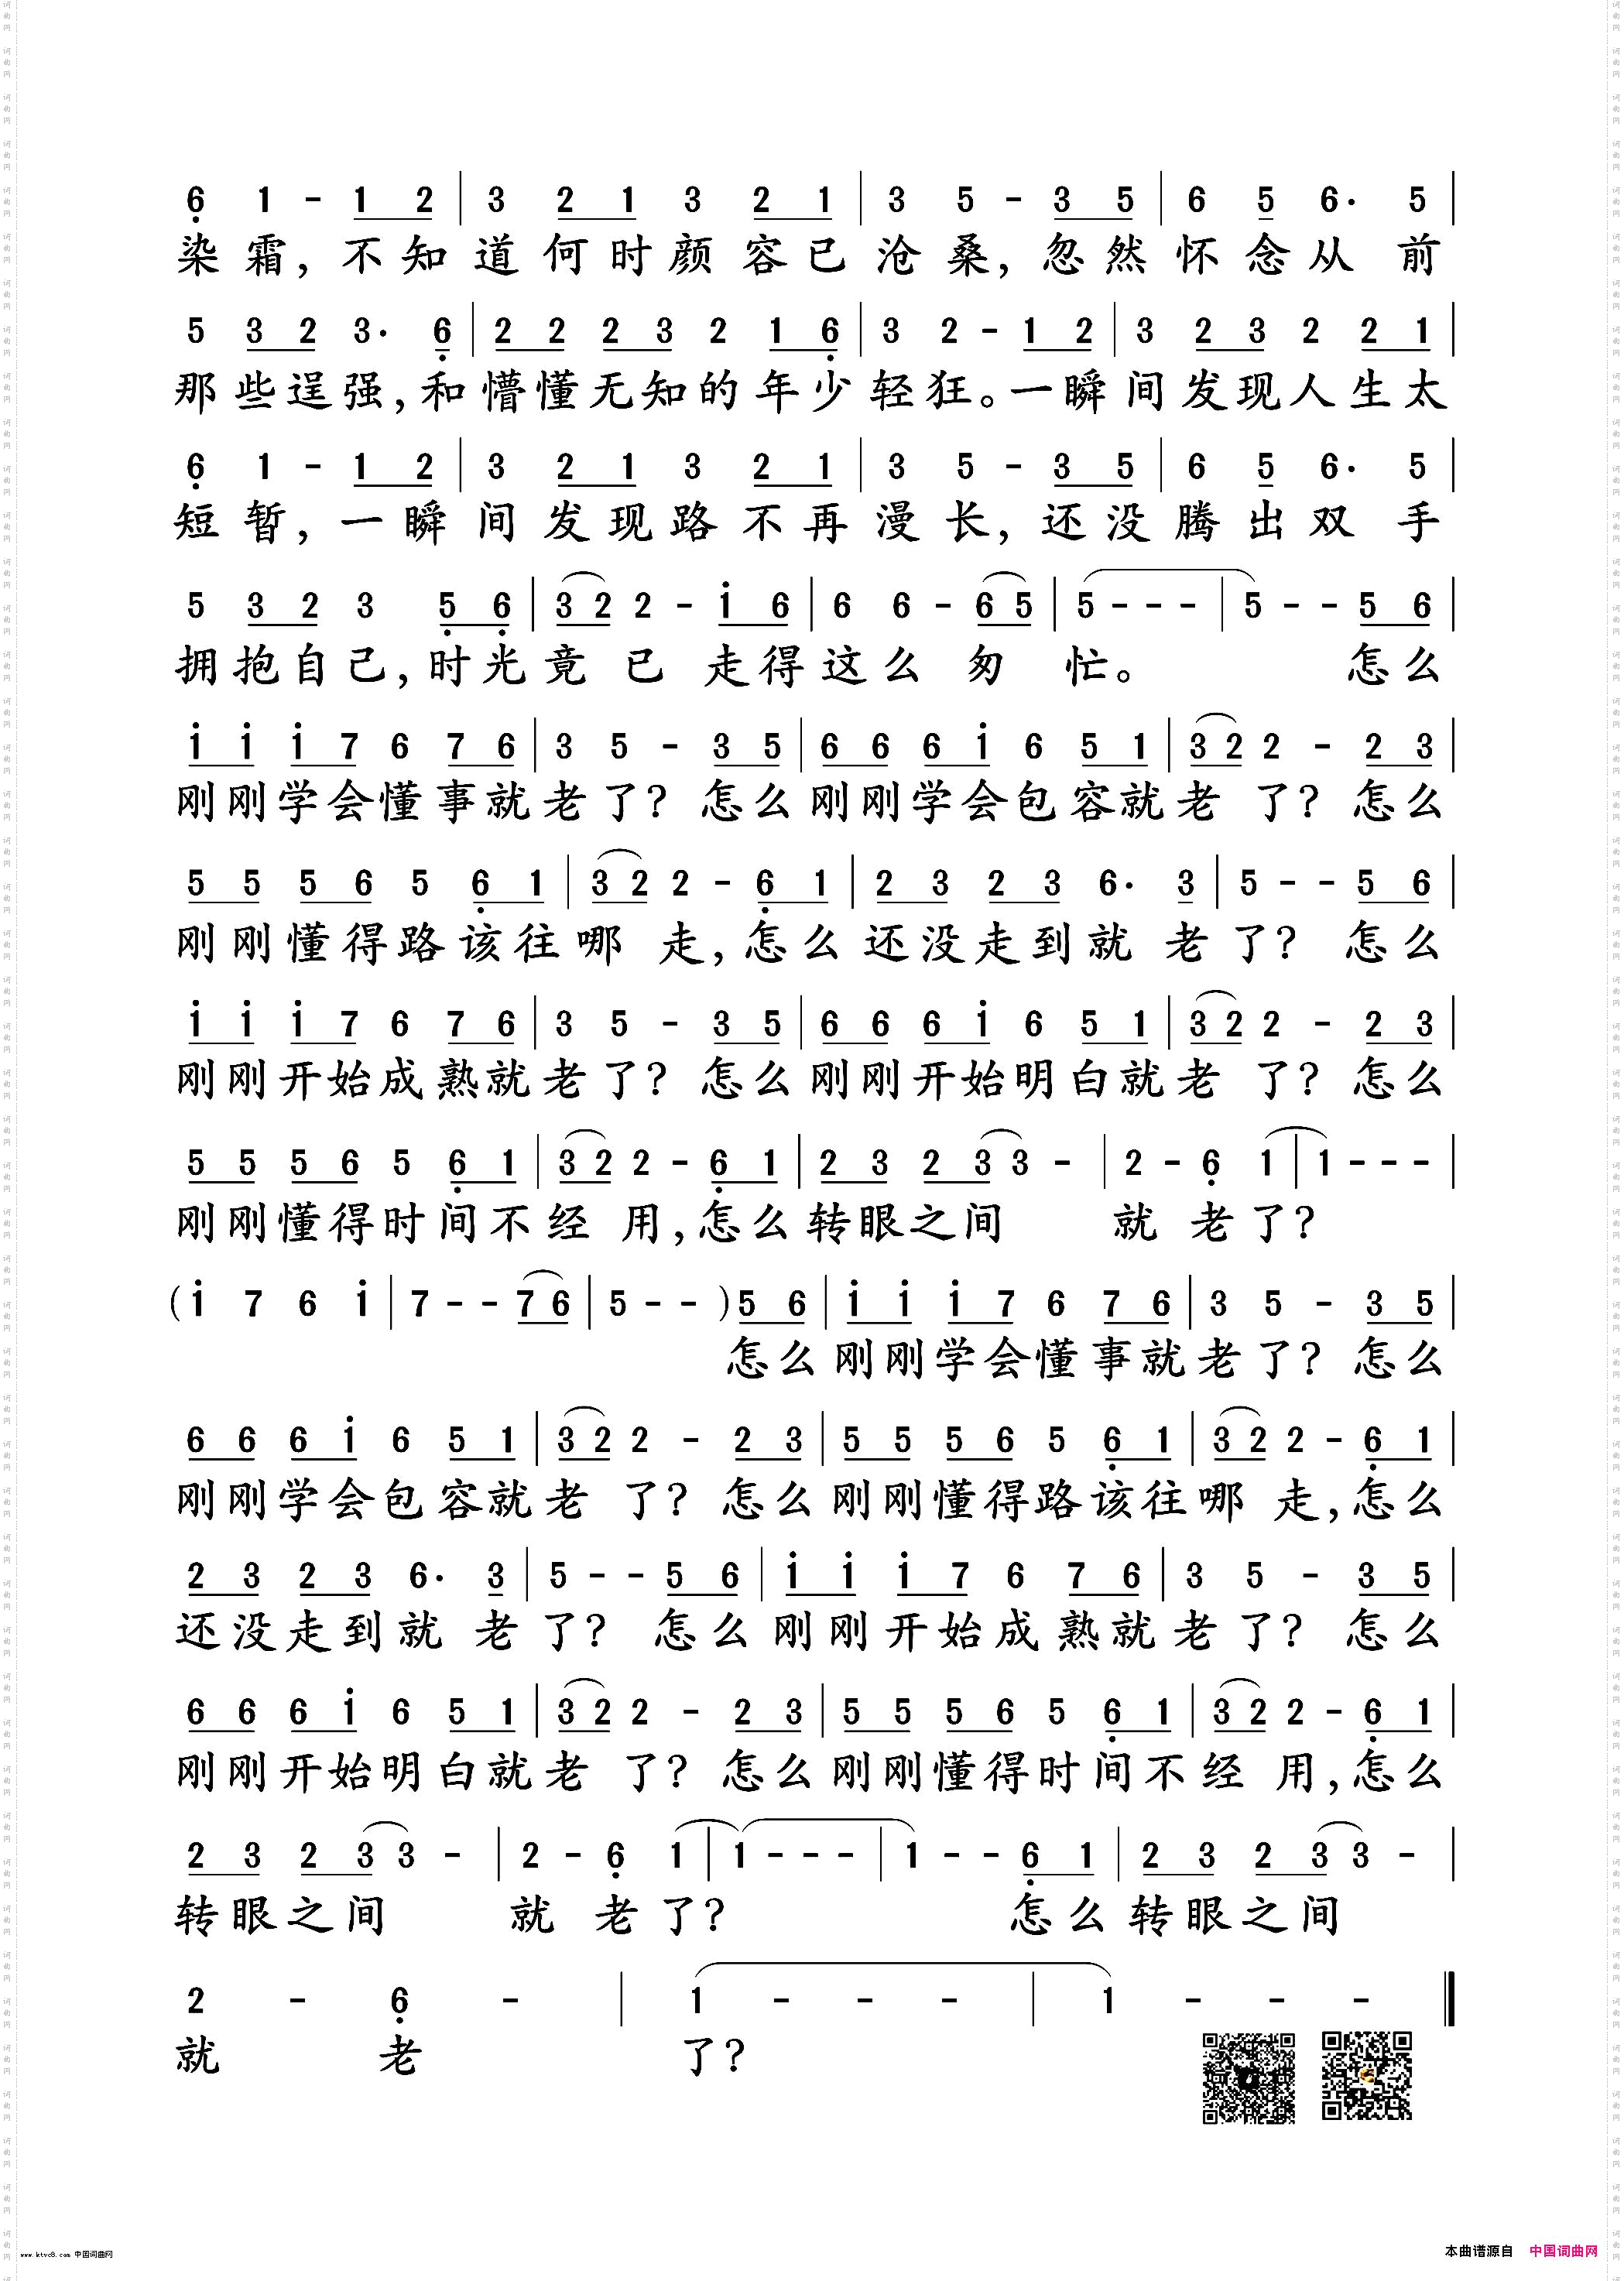 6̣ 1 - 1 2 | 3 2 1 3 2 1 | 3 5 - 3 5 | 6 5 6· 5 |
染霜,不知道何时颜容已沧桑,忽然怀念从前
5 3 2 3· 6̣ | 2 2 2 3 2 1 6̣ | 3 2 - 1 2 | 3 2 3 2 2 1 |
那些逞强,和懵懂无知的年少轻狂。一瞬间发现人生太
6̣ 1 - 1 2 | 3 2 1 3 2 1 | 3 5 - 3 5 | 6 5 6· 5 |
短暂,一瞬间发现路不再漫长,还没腾出双手
5 3 2 3 5̣ 6̣ | 3 2 2 - 1̇ 6 | 6 6 - 6 5 | 5 - - - | 5 - - 5 6 |
拥抱自己,时光竟已走得这么匆忙。怎么
1̇ 1̇ 1̇ 7 6 7 6 | 3 5 - 3 5 | 6 6 6 1̇ 6 5 1 | 3 2 2 - 2 3 |
刚刚学会懂事就老了?怎么刚刚学会包容就老了?怎么
5 5 5 6 5 6̣ 1 | 3 2 2 - 6̣ 1 | 2 3 2 3 6· 3 | 5 - - 5 6 |
刚刚懂得路该往哪走,怎么还没走到就老了?怎么
1̇ 1̇ 1̇ 7 6 7 6 | 3 5 - 3 5 | 6 6 6 1̇ 6 5 1 | 3 2 2 - 2 3 |
刚刚开始成熟就老了?怎么刚刚开始明白就老了?怎么
5 5 5 6 5 6̣ 1 | 3 2 2 - 6̣ 1 | 2 3 2 3 3 - | 2 - 6̣ 1 | 1 - - - |
刚刚懂得时间不经用,怎么转眼之间就老了?
(1̇ 7 6 1̇ | 7 - - 7 6 | 5 - - ) 5 6 | 1̇ 1̇ 1̇ 7 6 7 6 | 3 5 - 3 5 |
怎么刚刚学会懂事就老了?怎么
6 6 6 1̇ 6 5 1 | 3 2 2 - 2 3 | 5 5 5 6 5 6̣ 1 | 3 2 2 - 6̣ 1 |
刚刚学会包容就老了?怎么刚刚懂得路该往哪走,怎么
2 3 2 3 6· 3 | 5 - - 5 6 | 1̇ 1̇ 1̇ 7 6 7 6 | 3 5 - 3 5 |
还没走到就老了?怎么刚刚开始成熟就老了?怎么
6 6 6 1̇ 6 5 1 | 3 2 2 - 2 3 | 5 5 5 6 5 6̣ 1 | 3 2 2 - 6̣ 1 |
刚刚开始明白就老了?怎么刚刚懂得时间不经用,怎么
2 3 2 3 3 - | 2 - 6̣ 1 | 1 - - - | 1 - - 6̣ 1 | 2 3 2 3 3 - |
转眼之间就老了?怎么转眼之间
2 - 6̣ - | 1 - - - | 1 - - - ‖
就老了?
www.ktvc8.com 中国词曲网
本曲谱源自 中国词曲网